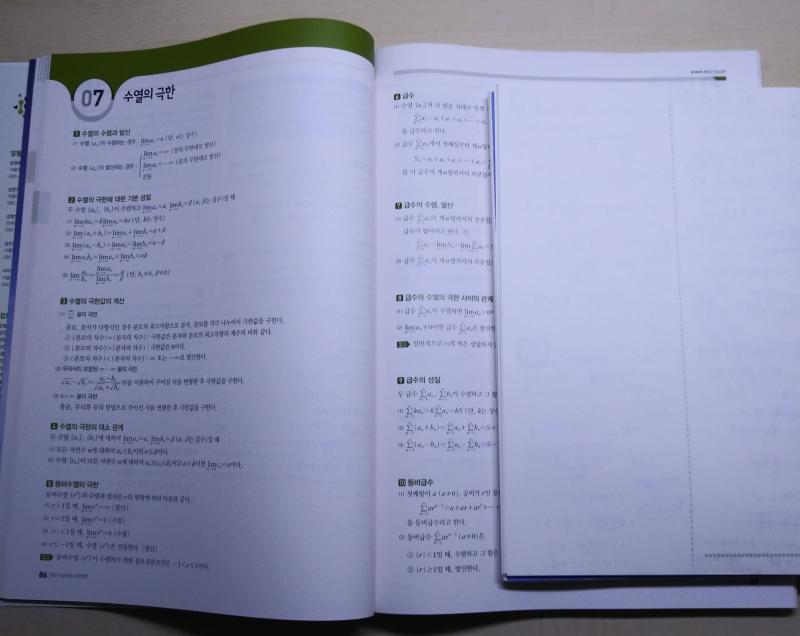 07 수열의 극한
1 수열의 수렴과 발산
(1) 수열 {aₙ}이 수렴하는 경우 : lim aₙ=α (단, α는 상수)
n→∞
(2) 수열 {aₙ}이 발산하는 경우 :
lim aₙ=∞ (양의 무한대로 발산)
lim aₙ=-∞ (음의 무한대로 발산)
진동
2 수열의 극한에 대한 기본 성질
두 수열 {aₙ}, {bₙ}이 수렴하고 lim aₙ=α, lim bₙ=β (α, β는 상수)일 때
(1) lim kaₙ=k lim aₙ=kα (단, k는 상수)
(2) lim (aₙ+bₙ)=lim aₙ+lim bₙ=α+β
(3) lim (aₙ-bₙ)=lim aₙ-lim bₙ=α-β
(4) lim aₙbₙ=lim aₙ×lim bₙ=αβ
(5) lim aₙ/bₙ=lim aₙ/lim bₙ=α/β (단, bₙ≠0, β≠0)
3 수열의 극한값의 계산
(1) ∞/∞ 꼴의 극한
분모, 분자가 다항식인 경우 분모의 최고차항으로 분자, 분모를 각각 나누어서 극한값을 구한다.
① (분모의 차수)=(분자의 차수) : 극한값은 분자와 분모의 최고차항의 계수의 비와 같다.
② (분모의 차수)>(분자의 차수) : 극한값은 0이다.
③ (분모의 차수)<(분자의 차수) : ∞ 또는 -∞로 발산한다.
(2) 무리식이 포함된 ∞-∞ 꼴의 극한
√aₙ-√bₙ=(aₙ-bₙ)/(√aₙ+√bₙ)임을 이용하여 주어진 식을 변형한 후 극한값을 구한다.
꼴의 극한
통분, 유리화 등의 방법으로 주어진 식을 변형한 후 극한값을 구한다.
4 수열의 극한의 대소 관계
두 수열 {aₙ}, {bₙ}에 대하여 lim aₙ=α, lim bₙ=β (α, β는 상수)일 때
(1) 모든 자연수 n에 대하여 aₙ≤bₙ이면 α≤β이다.
(2) 수열 {cₙ}이 모든 자연수 n에 대하여 aₙ≤cₙ≤bₙ이고 α=β이면 lim cₙ=α이다.
5 등비수열의 극한
등비수열 {rⁿ}의 수렴과 발산은 r의 범위에 따라 다음과 같다.
(1) r>1일 때, lim rⁿ=∞ (발산)
(2) r=1일 때, lim rⁿ=1 (수렴)
(3) |r|<1일 때, lim rⁿ=0 (수렴)
(4) r≤-1일 때, 수열 {rⁿ}은 진동한다. (발산)
참고 등비수열 {rⁿ}이 수렴하기 위한 필요충분조건은 -1<r≤1이다.
86
6 급수
(1) 수열 {aₙ}의 각 항을 차례로
을 급수라고 한다.
(2) 급수 ∑aₙ에서 첫째항부터 제n항
Sₙ=a₁+a₂+a₃+⋯+aₙ
를 이 급수의 제n항까지의 부분합
7 급수의 수렴, 발산
(1) 급수 ∑aₙ의 제n항까지의 부분합
급수의 합이라고 한다. 즉,
(2) 급수 ∑aₙ의 제n항까지의 부분합
8 급수와 수열의 극한 사이의 관계
(1) 급수 ∑aₙ이 수렴하면 lim aₙ=0
(2) lim aₙ≠0이면 급수 ∑aₙ은 발산
참고 일반적으로 (1)의 역은 성립하지
9 급수의 성질
두 급수 ∑aₙ, ∑bₙ이 수렴하고 그 합
(1) ∑kaₙ=k∑aₙ=kS (단, k는 상수
(2) ∑(aₙ+bₙ)=∑aₙ+∑bₙ=S+
(3) ∑(aₙ-bₙ)=∑aₙ-∑bₙ=S-
10 등비급수
(1) 첫째항이 a (a≠0), 공비가 r인 등
∑arⁿ⁻¹=a+ar+ar²+⋯
을 등비급수라고 한다.
(2) 등비급수 ∑arⁿ⁻¹ (a≠0)은
① |r|<1일 때, 수렴하고 그 합은
② |r|≥1일 때, 발산한다.